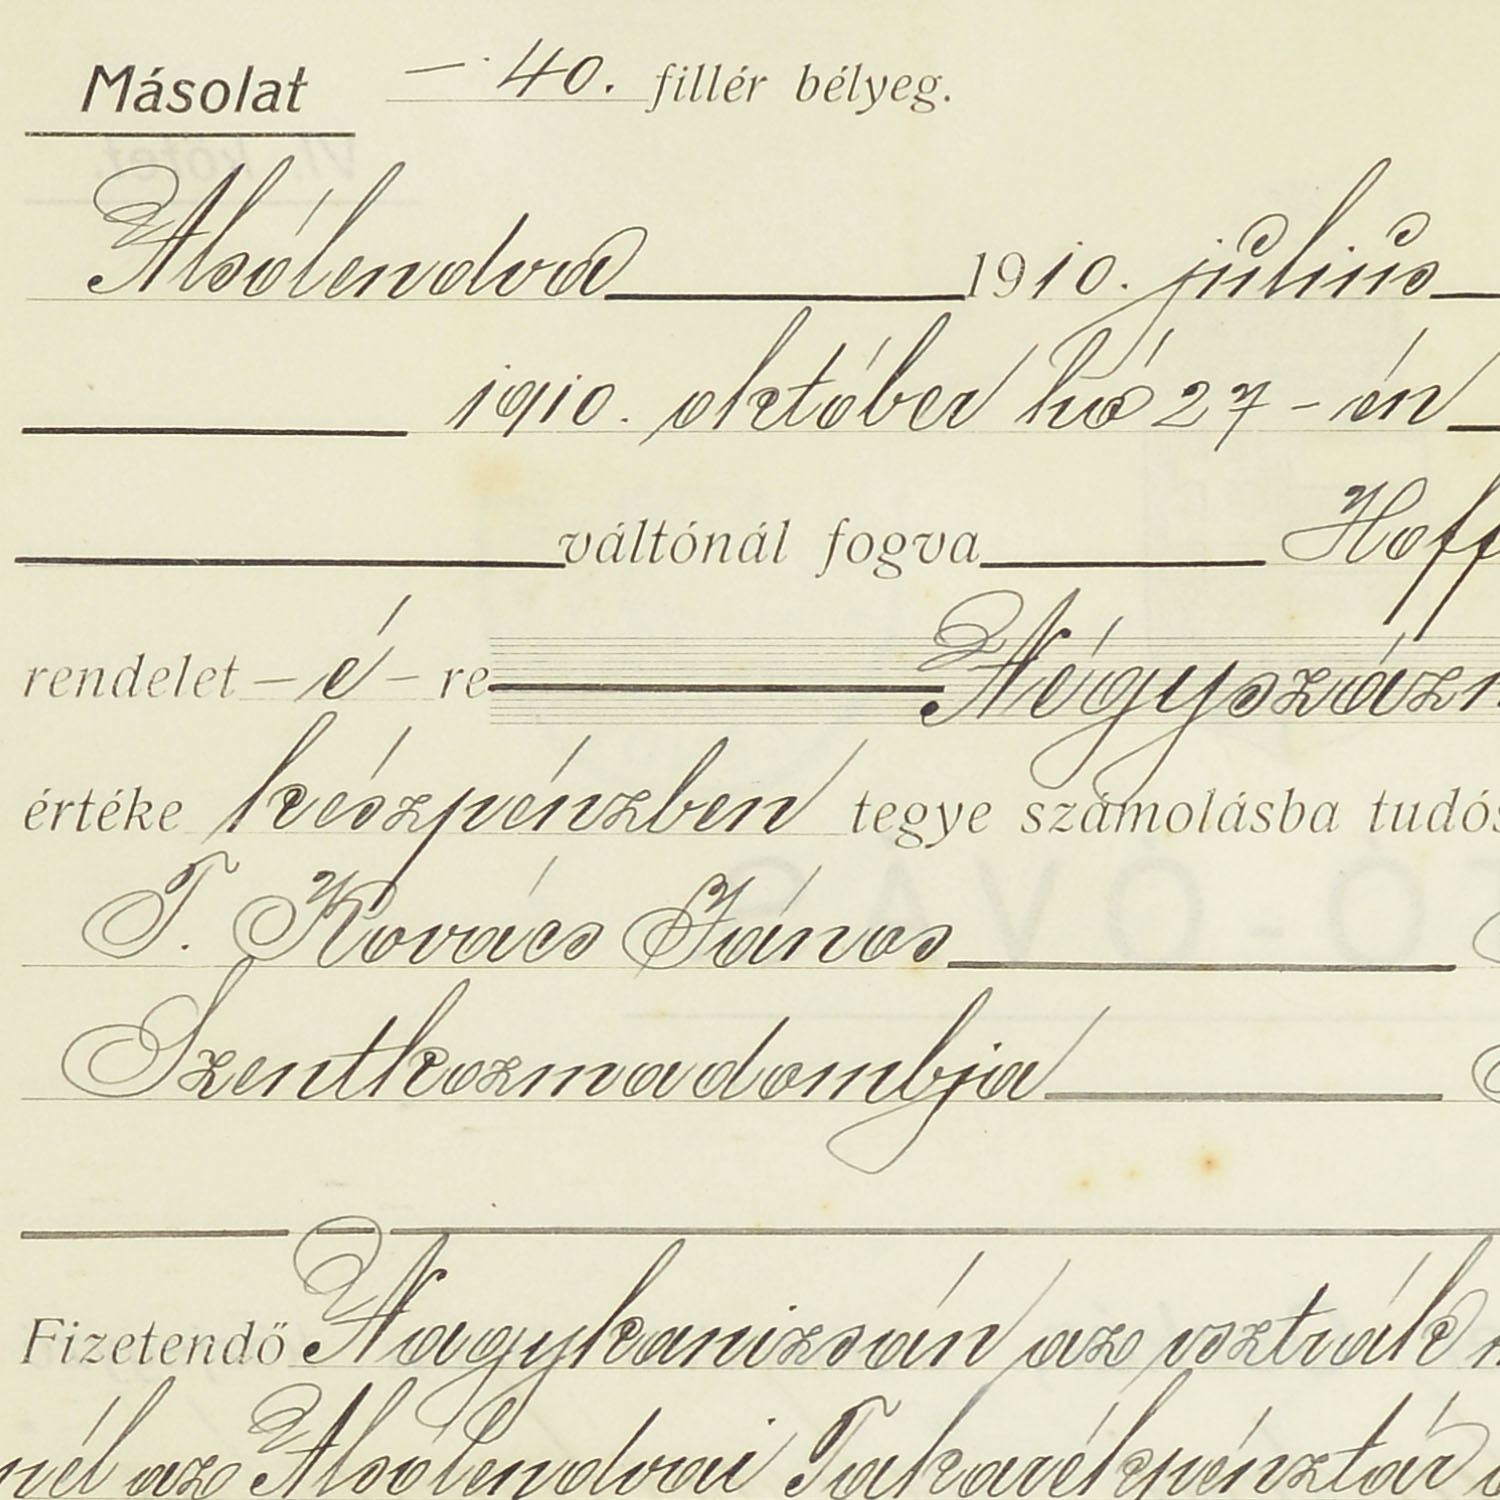 Másolat — 40. fillér bélyeg.
Alsólendva 1910. július
1910. október hó 27-én
váltónál fogva Hoff
rendelet – é – re Négyszázn
értéke készpénzben tegye számolásba tudós
T. Kovács János
Szentkozmadombja
Fizetendő Nagykanizsán az osztrák
nél az Alsólendvai Takarékpénztár